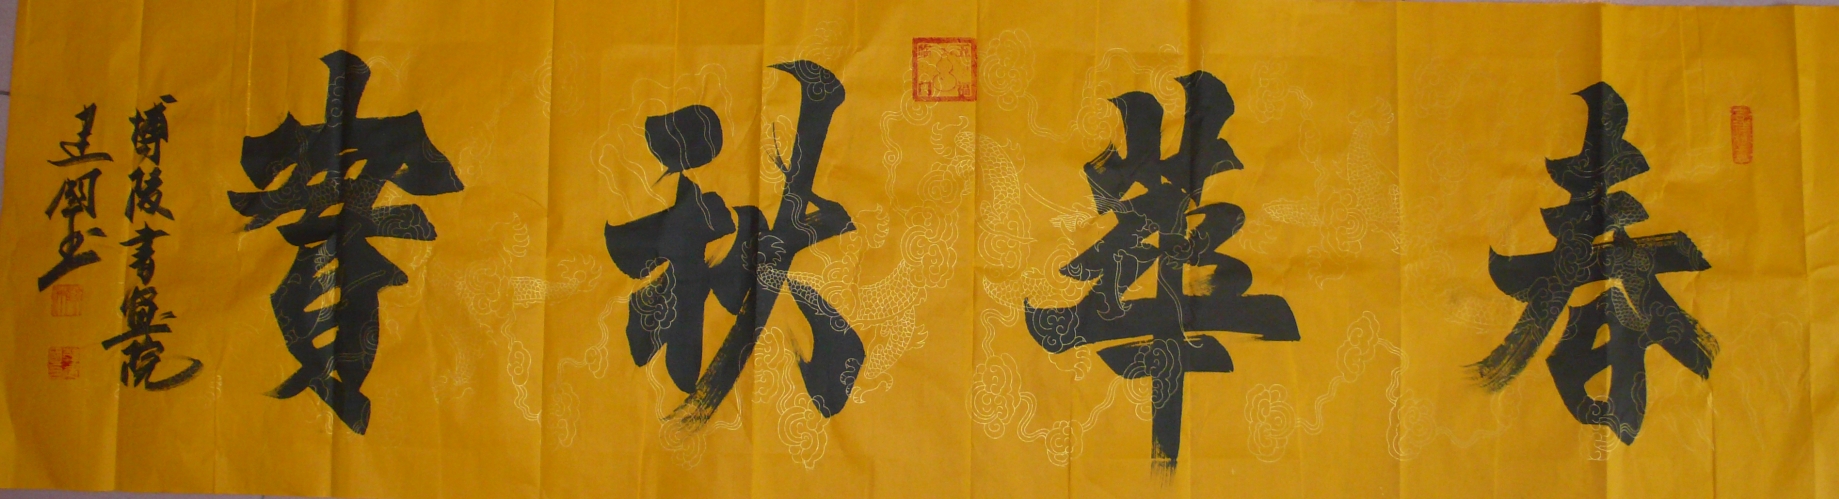 春華秋實
博陵書畫院
建國書